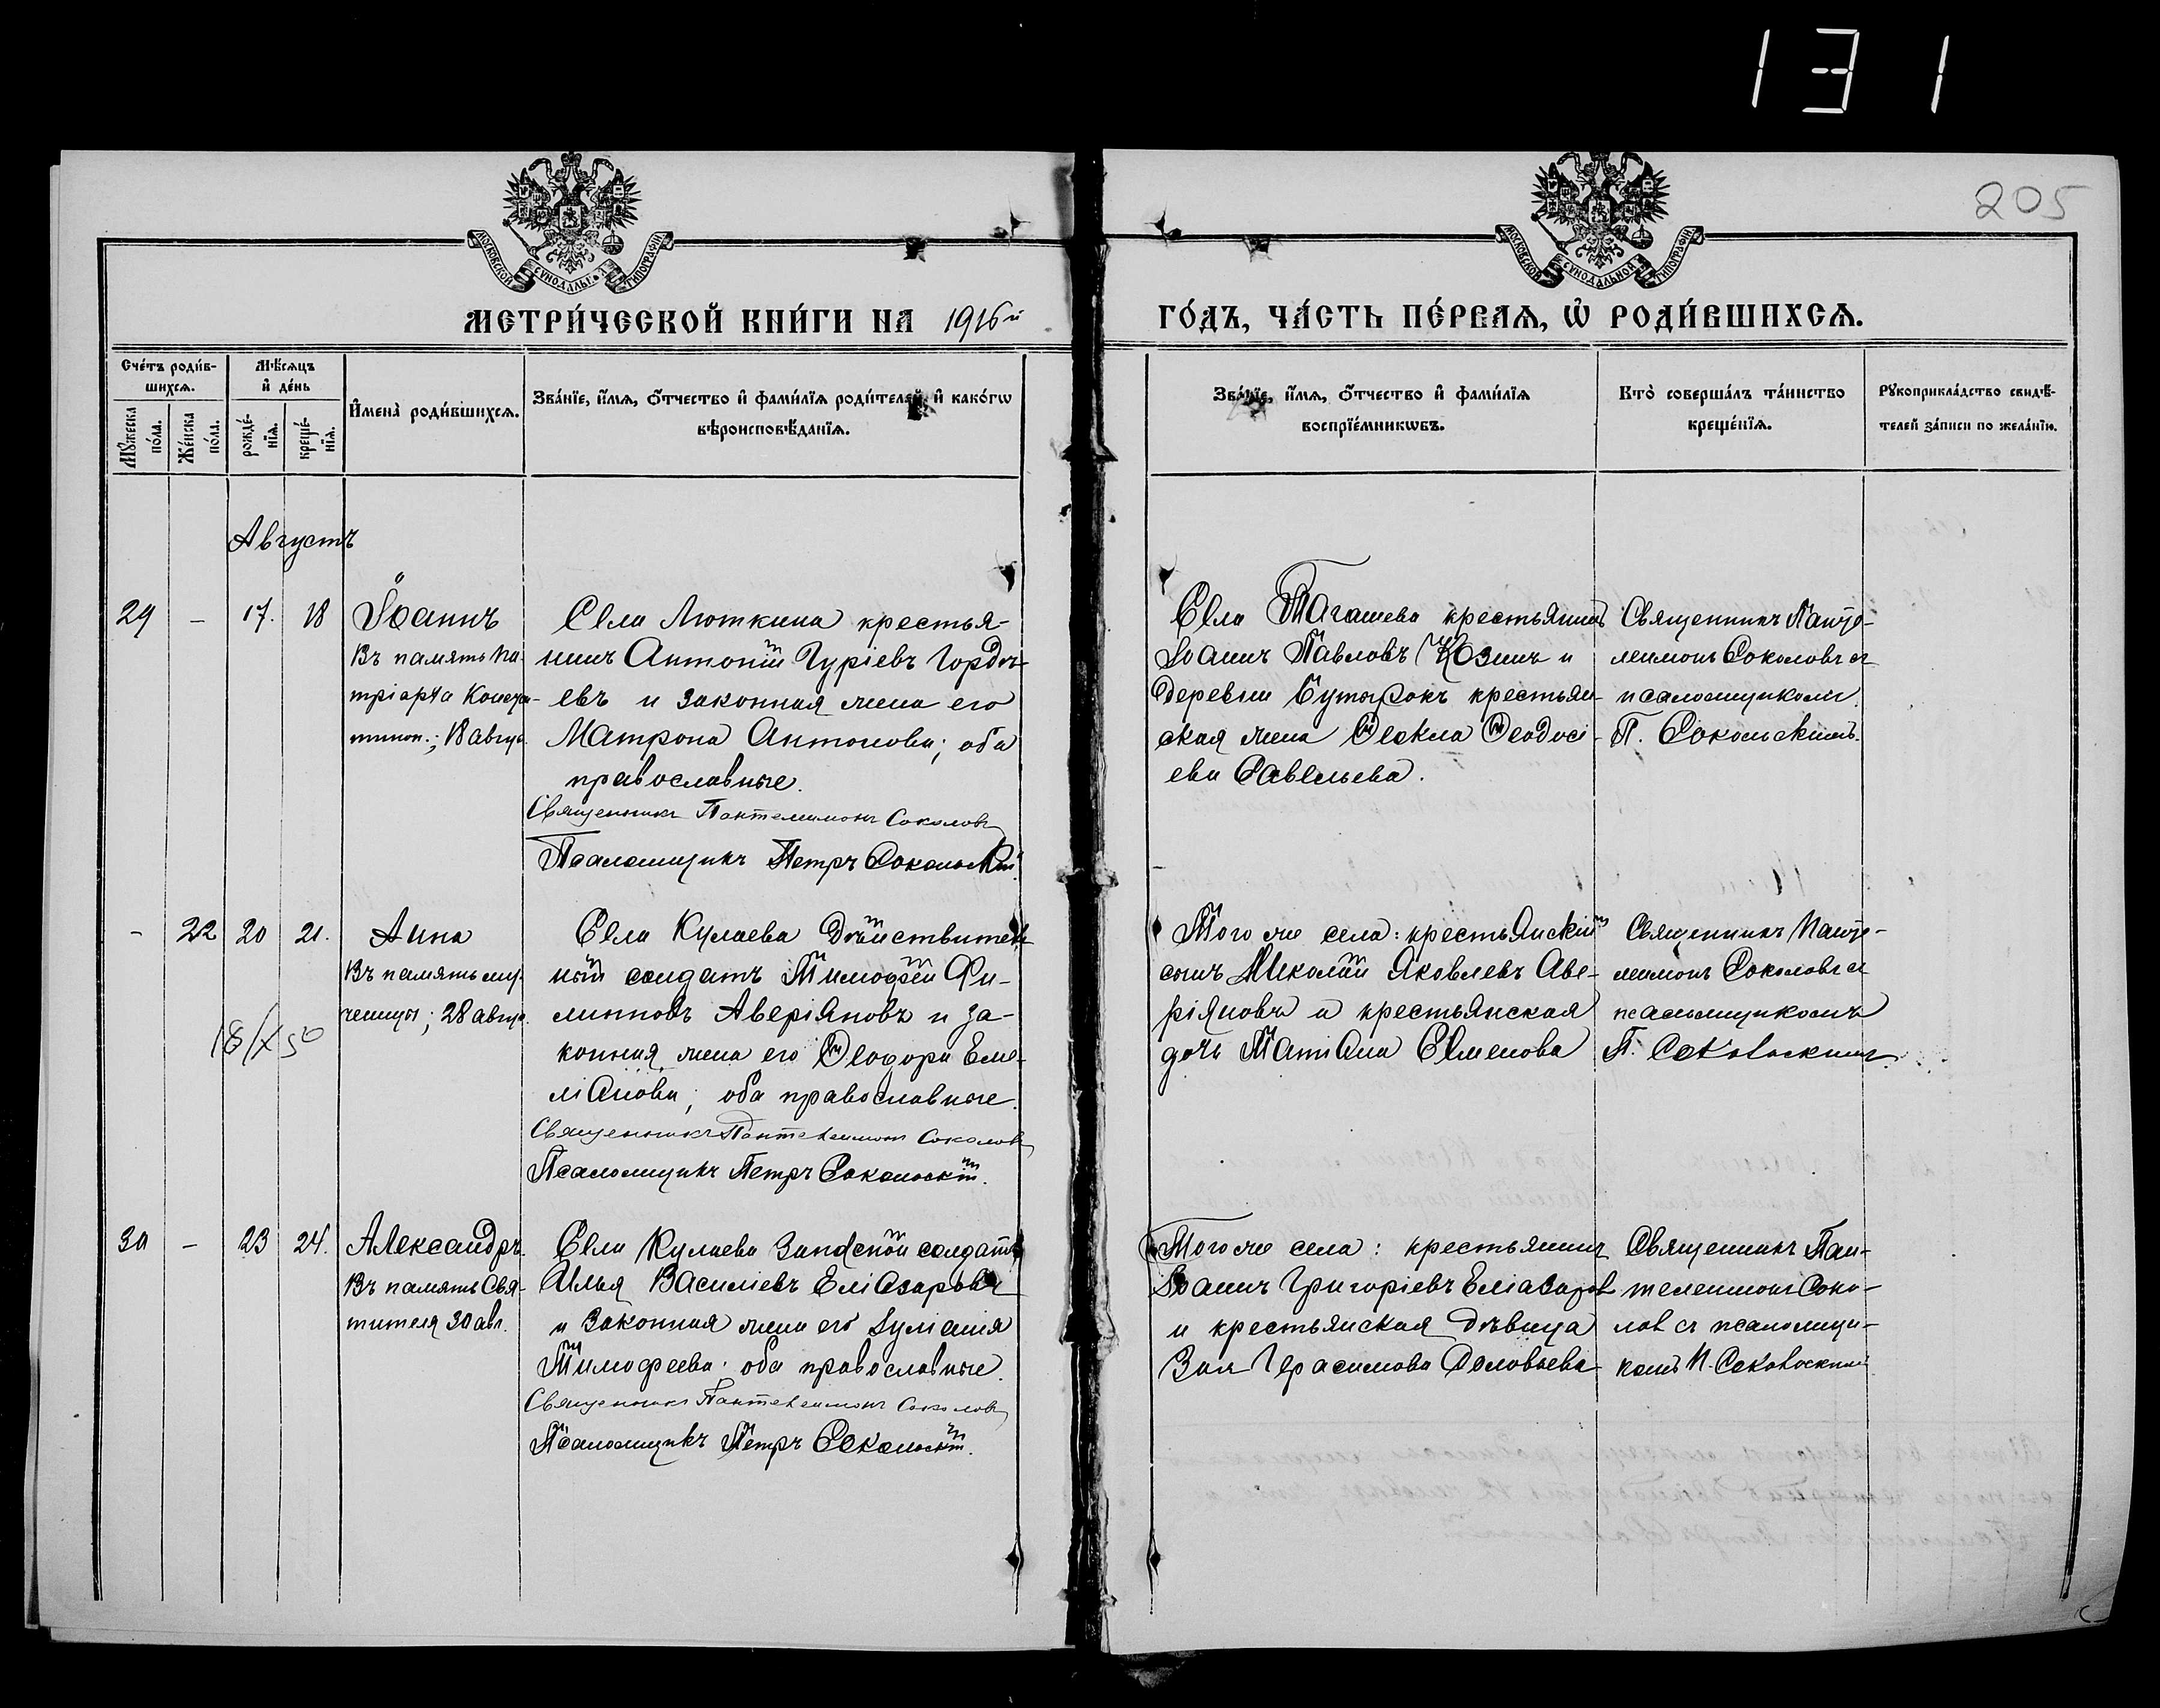 131
205
МОСКОВСКОЙ СѴНОДАЛЬНОЙ ТИПОГРАФІИ
МОСКОВСКОЙ СѴНОДАЛЬНОЙ ТИПОГРАФІИ
МЕТРИ́ЧЕСКОЙ КНИ́ГИ НА 1916й ГО́ДЪ, ЧА́СТЬ ПЕ́РВАѦ, Ѡ҆ РОДИ́ВШИХСѦ.
Сче́тъ роди́в-
шихсѧ.
Мꙋ́жеска
по́ла.
Же́нска
по́ла.
Мѣ́сѧцъ
и҆ де́нь
рожде́-
нїѧ.
креще́-
нїѧ.
И҆мена̀ роди́вшихсѧ.
Зва́нїе, и҆́мѧ, ѻ҆́тчество и҆ фами́лїѧ роди́телей, и҆ како́гѡ
вѣроисповѣ́данїѧ.
Зва́нїе, и҆́мѧ, ѻ҆́тчество и҆ фами́лїѧ
воспрїе́мникѡвъ.
Кто̀ соверша́лъ та́инство
креще́нїѧ.
Рꙋкоприкла́дство свидѣ́-
телей за́писи по жела́нїю.
Августъ
29 – 17. 18
Іоаннъ
Въ память па-
тріарха Конста-
тиноп.; 18 авгус.
Села Люткина крестья-
нинъ Антоній Гуріевъ Гордѣ-
евъ и законная жена его
Матрона Антонова; оба
православные.
Священникъ Пантелеимонъ Соколовъ
Псаломщикъ Петръ Сокольскій.
Села Тагашева крестьянинъ
Іоаннъ Павловъ Козинъ и
деревни Бутырокъ крестьян-
ская жена Ѳекла Ѳеодосі-
ева Савельева.
Священникъ Панте-
леимонъ Соколовъ съ
псаломщикомъ
П. Сокольскимъ.
– 22 20 21.
Анна
Въ память му-
ченицы; 28 авгус.
18/X 50
Села Кулаева дѣйствитель-
ный солдатъ Тимофей Фи-
липповъ Аверіяновъ и за-
конная жена его Ѳеодора Еме-
ліанова; оба православные.
Священникъ Пантелеимонъ Соколовъ
Псаломщикъ Петръ Сокольскій.
Того же села: крестьянскій
сынъ Николай Яковлевъ Аве-
ріяновъ и крестьянская
дочь Татіана Семенова
Священникъ Панте-
леимонъ Соколовъ съ
псаломщикомъ
П. Сокольскимъ.
30 – 23 24.
Александръ.
Въ память Свя-
тителя 30 авг.
Села Кулаева запасной солдатъ
Илья Василіевъ Еліазаровъ
и законная жена его Іуліанія
Тимофеева; оба православные.
Священникъ Пантелеимонъ Соколовъ
Псаломщикъ Петръ Сокольскій.
Того же села: крестьянинъ
Іоаннъ Григоріевъ Еліазаровъ
и крестьянская дѣвица
Зоя Герасимова Соловьева
Священникъ Пан-
телеимонъ Соко-
ловъ съ псаломщи-
комъ П. Сокольскимъ